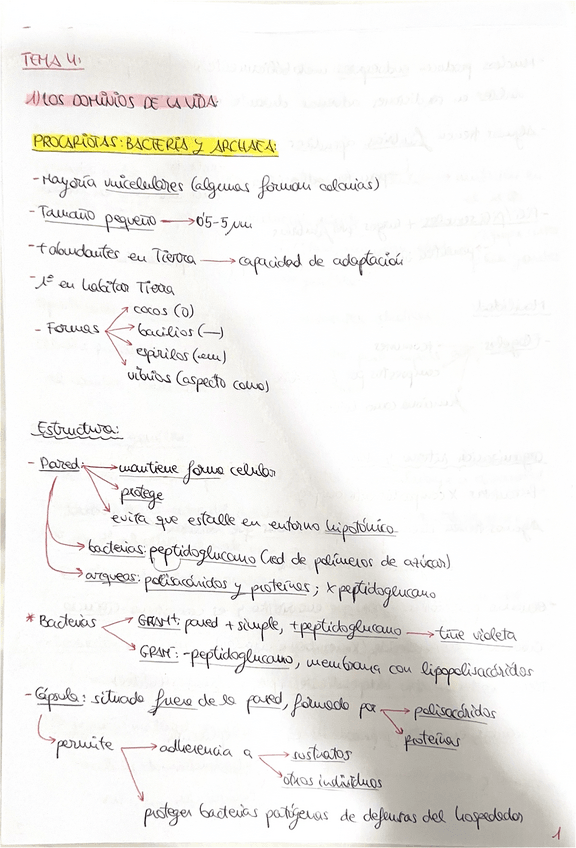 TEMA 4:
1) LOS DOMINIOS DE LA VIDA:
PROCARIOTAS: BACTERIA Y ARCHAEA:
- Mayoría unicelulares (algunas forman colonias)
- Tamaño pequeño → 0'5-5 μm
- + abundantes en Tierra → capacidad de adaptación
- 1º en habitar Tierra
- Formas → cocos (O)
→ bacilios (—)
→ espirilos (~)
→ vibrios (aspecto coma)
Estructura:
- Pared: → mantiene forma celular
→ protege
→ evita que estalle en entorno hipotónico.
→ bacterias: peptidoglucano (red de polímeros de azúcar)
→ arqueas: polisacáridos y proteínas; x peptidoglucano
* Bacterias → GRAM+: pared + simple, + peptidoglucano → tiñe violeta
→ GRAM-: - peptidoglucano, membrana con lipopolisacáridos
- Cápsula: situada fuera de la pared, formada por → polisacáridos
→ proteínas
→ permite → adherencia a → sustratos
→ otros individuos
→ proteger bacterias patógenas de defensas del hospedador
1